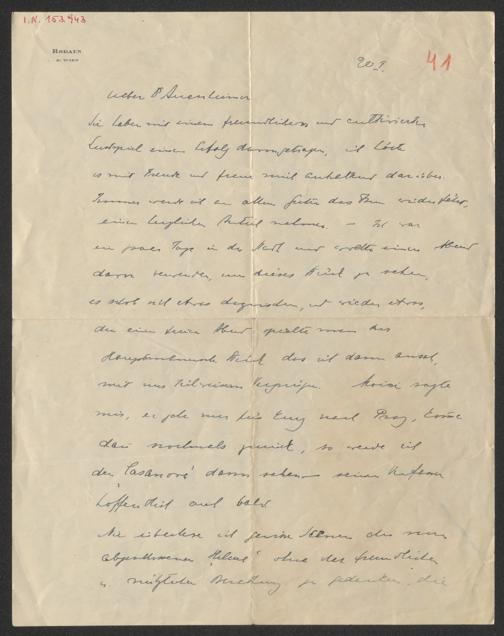 I.N. 153.943
RODAUN
B. WIEN
20 I.
41
lieber Dr Auernheimer
Sie haben mit einem freundlichen und cultivierten
Lustspiel einen Erfolg davongetragen, ich
es mit Freude und freue mich darüber.
Immer werde ich an allem Guten das Ihnen widerfährt,
einen herzlichen Anteil nehmen. — Ich war
ein paar Tage in der Stadt und wollte einen Abend
dazu verwenden, um dieses Stück zu sehen,
es schob sich etwas dazwischen, und wieder etwas,
den einen freien Abend spielte man das
Hauptmannsche Stück das ich dann ansah,
mit nur teilweisem Vergnügen. Moissi sagte
mir, er gehe nur für kurz nach Prag, komme
dann nochmals zurück, so werde ich
den "Casanova" dann sehen
hoffentlich auf bald
Nie überlese ich gewisse Scenen der nun
abgeschlossenen "Helena" ohne der freundlichen
u. nützlichen Beratung zu gedenken, die